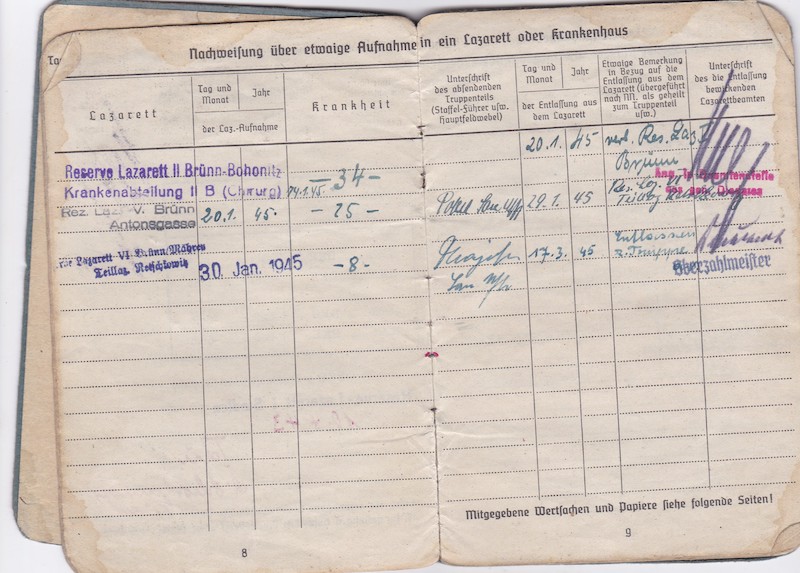 Nachweisung über etwaige Aufnahme in ein Lazarett oder Krankenhaus
Lazarett
Tag und Monat
Jahr
der Laz.-Aufnahme
Krankheit
Unterschrift des absendenden Truppenteils (Staffel-Führer usw. Hauptfeldwebel)
Tag und Monat
Jahr
der Entlassung aus dem Lazarett
Etwaige Bemerkung in Bezug auf die Entlassung aus dem Lazarett (übergeführt nach NN. als geheilt zum Truppenteil usw.)
Unterschrift des die Entlassung bewirkenden Lazarettbeamten
Reserve Lazarett II Brünn-Bohonitz
Krankenabteilung II B (Chirurg)
-34-
20.1. 45 verl. Res. Laz. V
Brünn
Res. Laz. V. Brünn
Antonsgasse
20.1. 45. -25-
29.1. 45 Res. Laz.
Lazarett VI Brünn/Mähren
Teillaz.
30. Jan. 1945 -8-
17.3. 45 Entlassen
z. Truppe
Oberzahlmeister
Mitgegebene Wertsachen und Papiere siehe folgende Seiten!
8
9